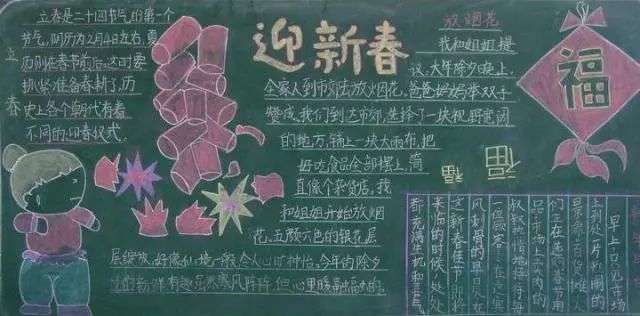 立春
立春是二十四节气的第一个
节气，阴历为2月4日左右，夏
历则在春节前后。这时要
抓紧准备春耕了，历
史上各个朝代有着
不同的迎春仪式。
迎新春
放烟花
我和姐姐提
议，大年除夕晚上，
全家人到市郊去放火烟花，爸爸妈妈举双手
赞成。我们到达市郊，选择了一块视野宽阔
的地方，铺上一块大雨布，把
好吃食品全部摆上，简
直像个杂货店，我
和姐姐开始放烟
花，五颜六色的银花层
层绽放，好像仙境一般，令人心旷神怡，今年的除夕
过的新鲜有趣，虽然寒风阵阵，但心里暖融融的。
福
福
福
早上只见市场
上到处一片热闹的
们正在
品，市场上卖肉的
叔叔热情地招待每
一位顾客。在这寒
风刺骨的
这新春佳节即将
来临的时候，处处
都充满生机和喜气